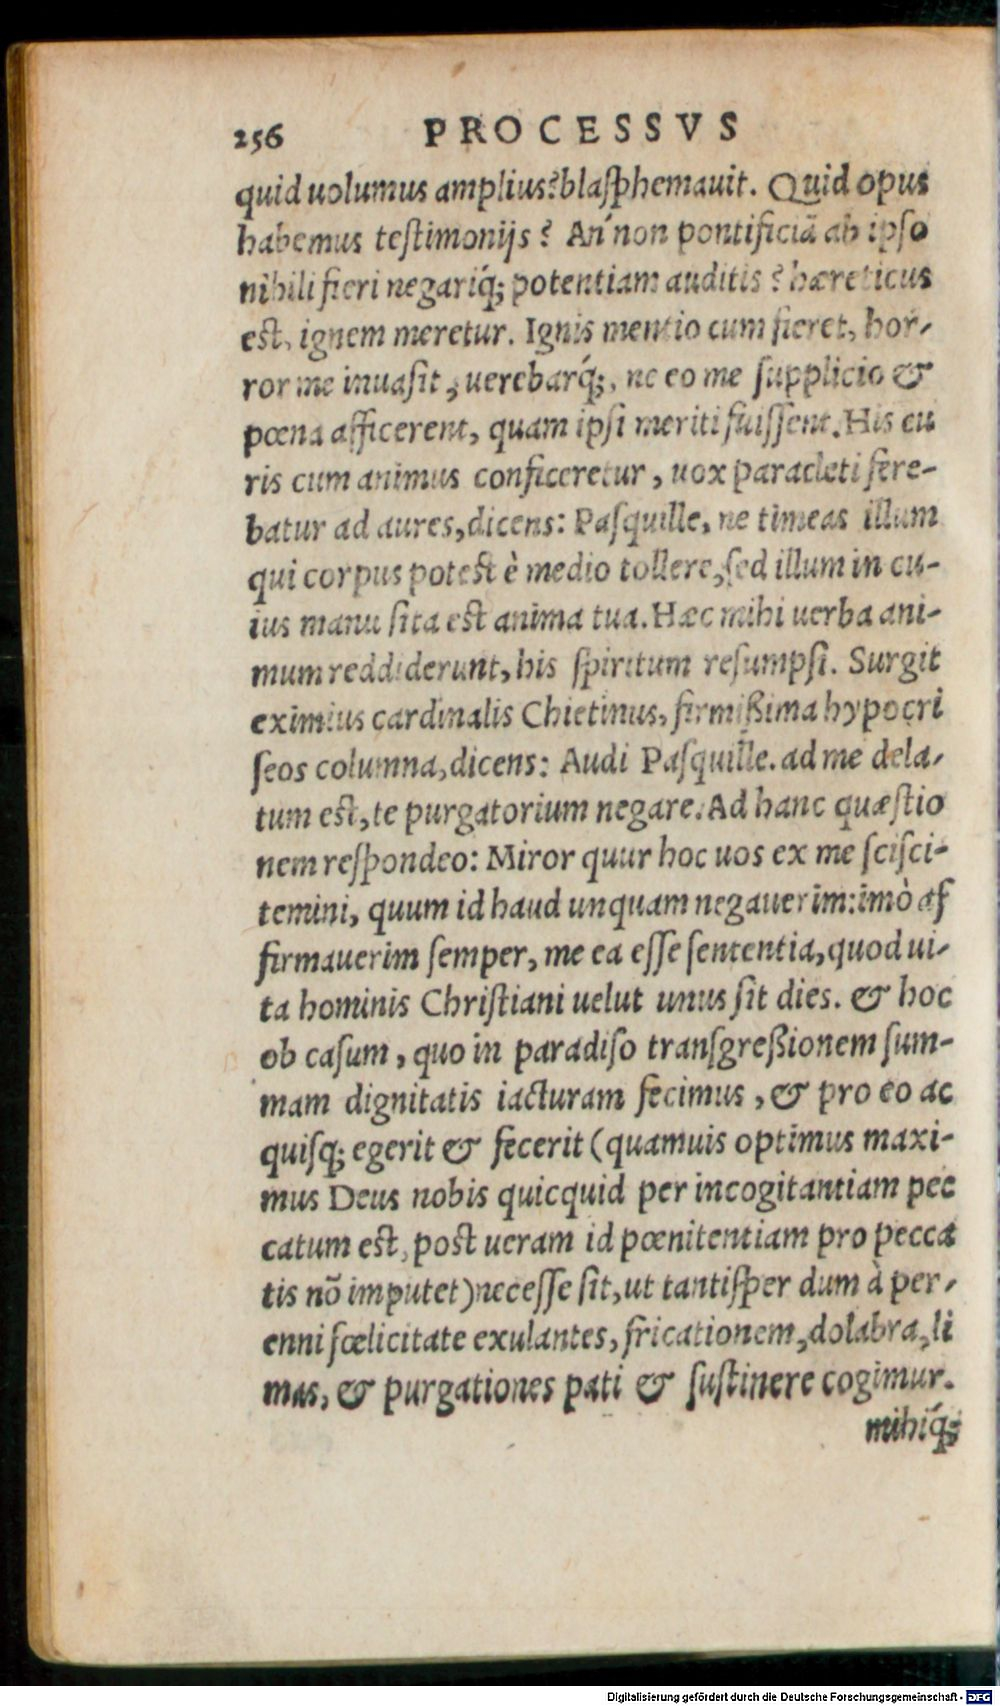 256 PROCESSVS
quid uolumus amplius? blasphemauit. Quid opus
habemus testimonijs?Ań non pontificiā ab ipso
nihili fieri negariq́; potentiam auditis? hæreticus
est, ignem meretur. Ignis mentio cum fieret, hor-
ror me inuasit, uerebarq́;, ne eo me supplicio &
pœna afficerent, quam ipsi meriti fuissent. His cu
ris cum animus conficeretur, uox paracleti fere-
batur ad aures, dicens: Pasquille, ne timeas illum
qui corpus potest è medio tollere, sed illum in cu-
ius manu sita est anima tua. Hæc mihi uerba ani-
mum reddiderunt, his spiritum resumpsi. Surgit
eximius cardinalis Chietinus, firmißima hypocri
seos columna, dicens: Audi Pasquille. ad me dela-
tum est, te purgatorium negare. Ad hanc quæstio
nem respondeo: Miror quur hoc uos ex me scisci-
temini, quum id haud unquam negauerim: imò af
firmauerim semper, me ea esse sententia, quod ui-
ta hominis Christiani uelut unus sit dies. & hoc
ob casum, quo in paradiso transgreßionem sum-
mam dignitatis iacturam fecimus, & pro eo ac
quisq; egerit & fecerit (quamuis optimus maxi-
mus Deus nobis quicquid per incogitantiam pec
catum est, post ueram id pœnitentiam pro pecca
tis nō imputet) necesse sit, ut tantisper dum à per-
enni fœlicitate exulantes, fricationem, dolabra, li
mas, & purgationes pati & sustinere cogimur.
mihiq́;
Digitalisierung gefördert durch die Deutsche Forschungsgemeinschaft - DFG